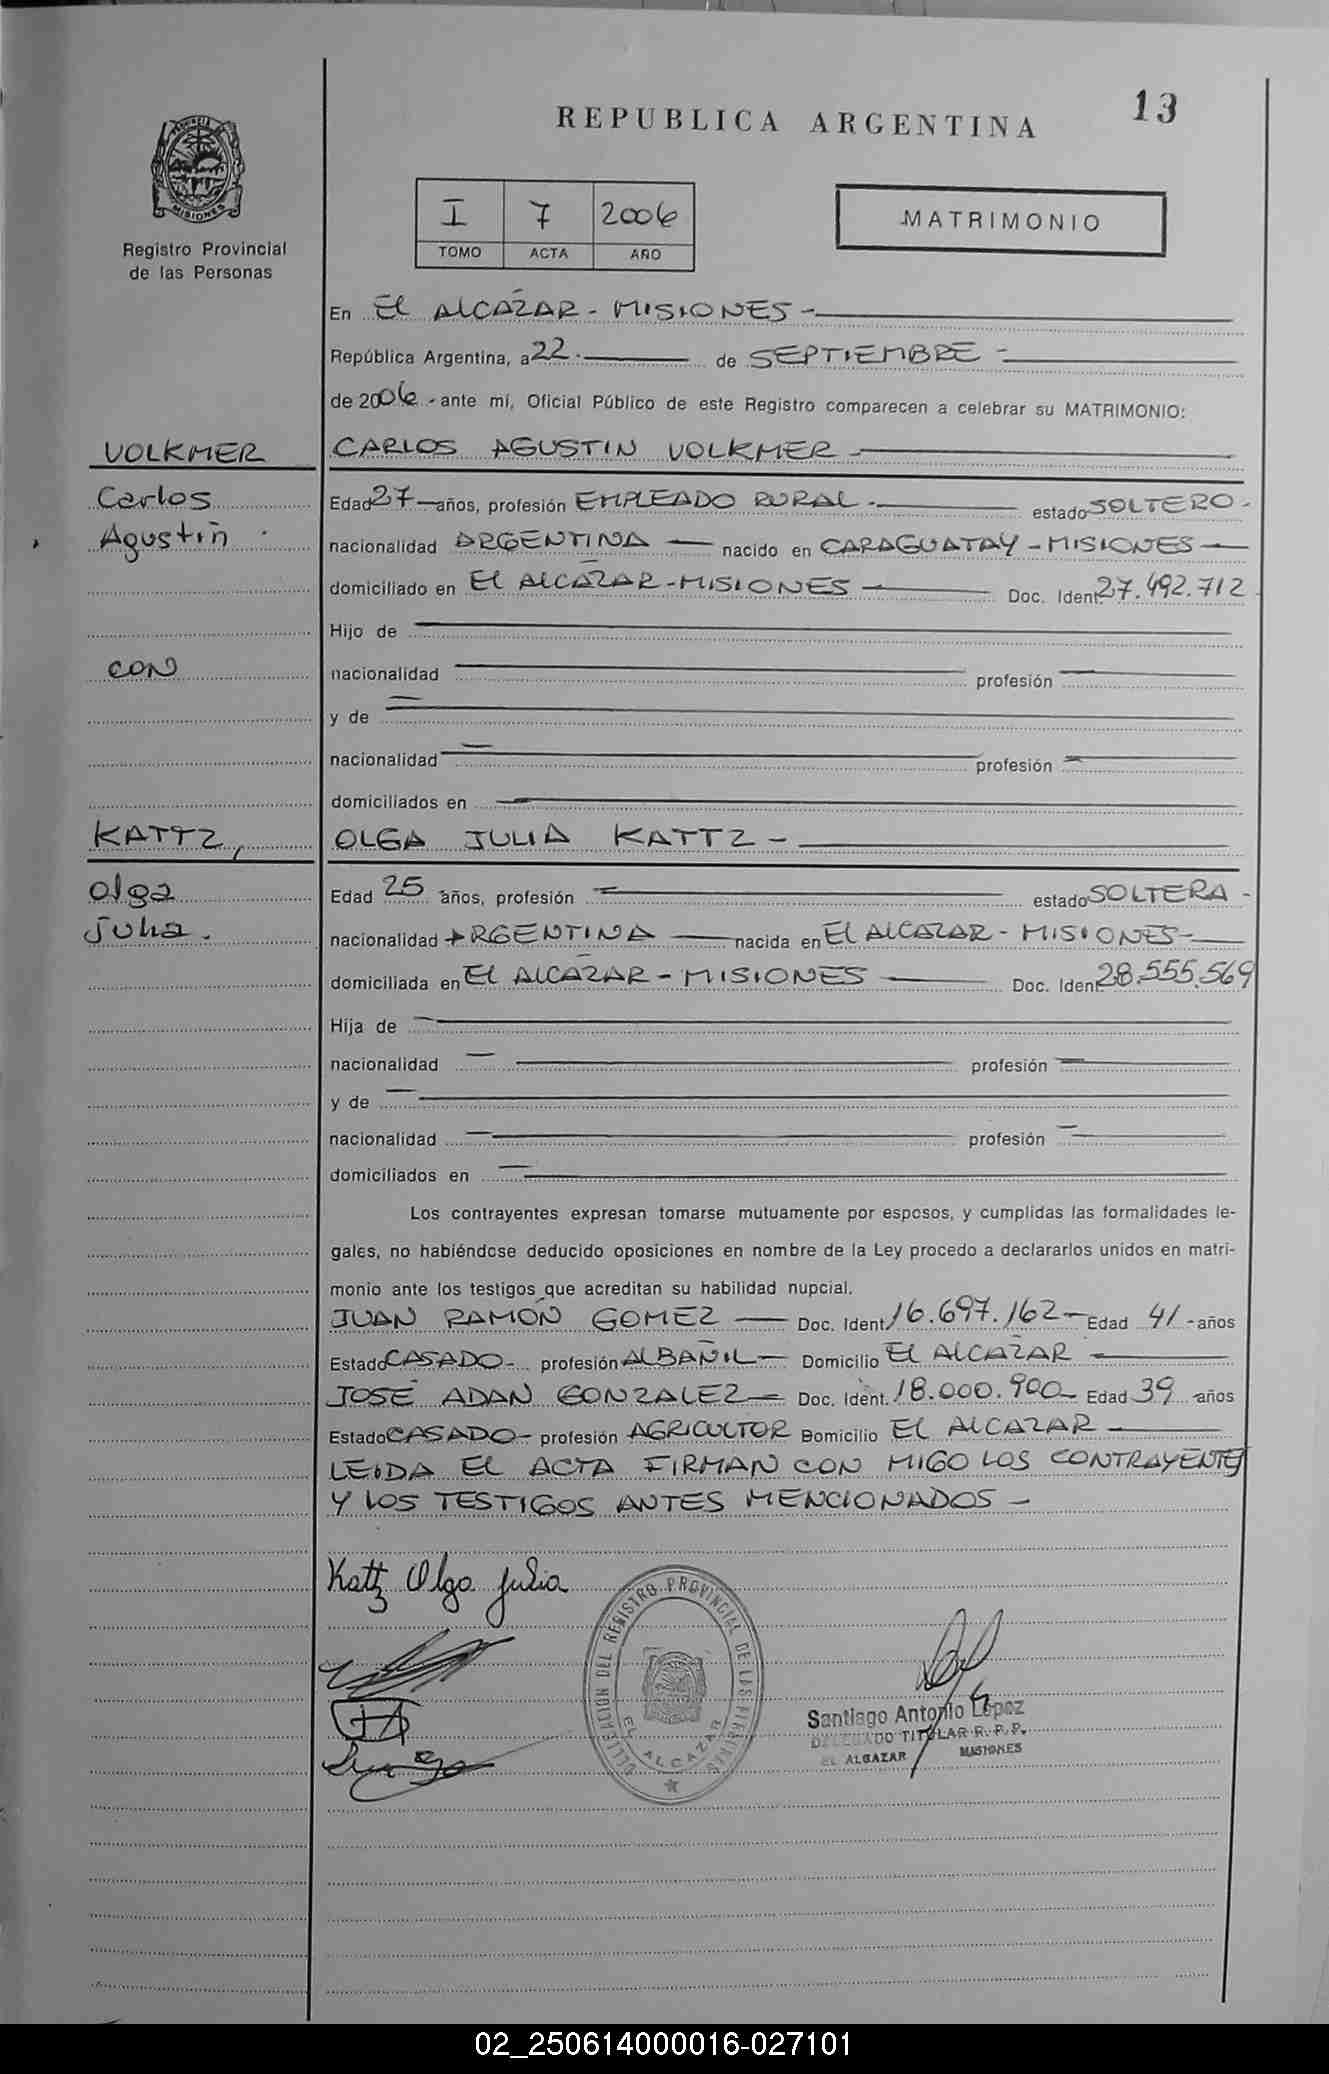 13
REPUBLICA ARGENTINA
PROVINCIA DE
MISIONES
Registro Provincial
de las Personas
I 7 2006
TOMO ACTA AÑO
MATRIMONIO
En EL ALCAZAR - MISIONES -
República Argentina, a 22 - de SEPTIEMBRE -
de 2006 - ante mí, Oficial Público de este Registro comparecen a celebrar su MATRIMONIO:
VOLKMER CARLOS AGUSTIN VOLKMER
Carlos Edad 27 años, profesión EMPLEADO RURAL - estado SOLTERO -
Agustin nacionalidad ARGENTINA nacido en CARAGUATAY - MISIONES
domiciliado en EL ALCAZAR - MISIONES Doc. Ident. 27.492.712
Hijo de
CON nacionalidad profesión
y de
nacionalidad profesión
domiciliados en
KATTZ, OLGA JULIA KATTZ -
Olga Edad 25 años, profesión estado SOLTERA -
Julia. nacionalidad ARGENTINA nacida en EL ALCAZAR - MISIONES -
domiciliada en EL ALCAZAR - MISIONES Doc. Ident. 28.555.569
Hija de
nacionalidad profesión
y de
nacionalidad profesión
domiciliados en
Los contrayentes expresan tomarse mutuamente por esposos, y cumplidas las formalidades le-
gales, no habiéndose deducido oposiciones en nombre de la Ley procedo a declararlos unidos en matri-
monio ante los testigos que acreditan su habilidad nupcial.
JUAN RAMÓN GOMEZ Doc. Ident. 16.697.162 - Edad 41 - años
Estado CASADO - profesión ALBAÑIL - Domicilio EL ALCAZAR
JOSÉ ADAN GONZALEZ - Doc. Ident. 18.000.900 - Edad 39 años
Estado CASADO - profesión AGRICULTOR Domicilio EL ALCAZAR -
LEIDA EL ACTA FIRMAN CON MIGO LOS CONTRAYENTES
Y LOS TESTIGOS ANTES MENCIONADOS -
Kattz Olga Julia
DELEGACION DEL REGISTRO PROVINCIAL DE LAS PERSONAS
EL ALCAZAR
Santiago Antonio López
DELEGADO TITULAR R. P. P.
EL ALCAZAR MISIONES
02_250614000016-027101